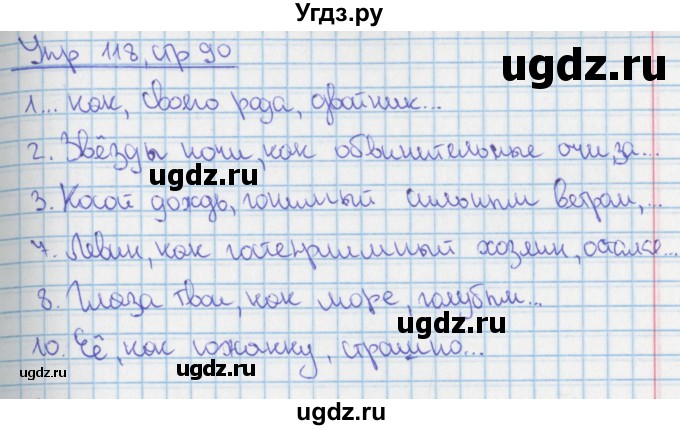 Угдз.ру
Упр 118, стр 90
1... как, своего рода, двойник...
2. Звёзды ночи, как обвинительные очи, за...
3. Косой дождь, гонимый сильным ветром,...
7. Левин, как гостеприимный хозяин, остался...
8. Глаза твои, как море, голубым...
10. Её, как южанку, страшно...
ugdz.ru
ugdz.ru
ugdz.ru
ugdz.ru
ugdz.ru
ugdz.ru
ugdz.ru
ugdz.ru